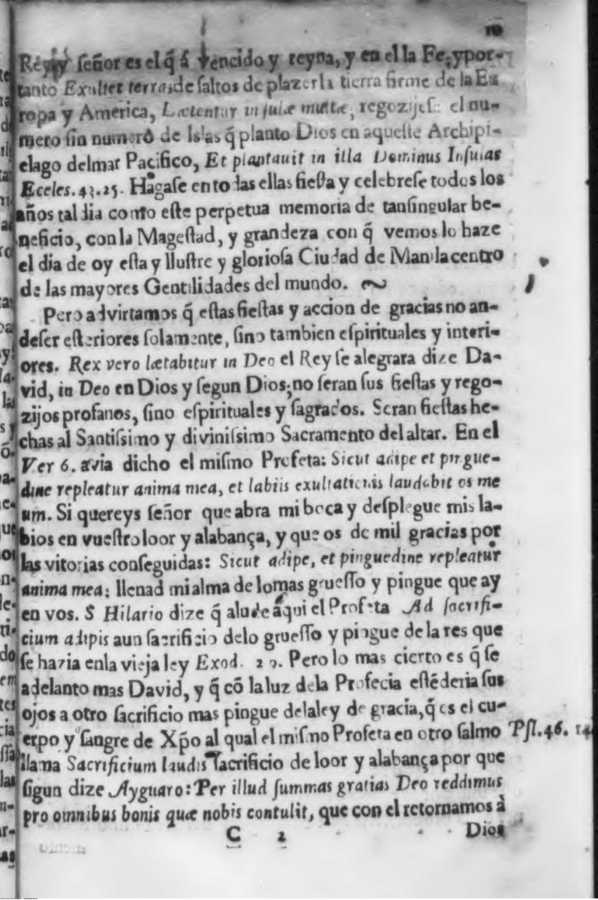 10
Rey y señor es el q̃ á vencido y reyna, y en el la Fe, y por-
tanto Exultet terra: de saltos de plazer la tierra firme de la Eu
ropa y America, Lætentur insulæ multæ, regozijese el nu-
mero sin numero de Islas q̃ planto Dios en aqueste Archipi-
elago del mar Pacifico, Et plantauit in illa Dominus Insulas
Eccles. 43. 25. Hagase en todas ellas fiesta y celebrese todos los
años tal dia como este perpetua memoria de tan singular be-
neficio, con la Magestad, y grandeza con q̃ vemos lo haze
el dia de oy esta y llustre y gloriosa Ciudad de Manila centro
de las mayores Gentilidades del mundo.
Pero advirtamos q̃ estas fiestas y accion de gracias no an-
deser esteriores solamente, sino tambien espirituales y interi-
ores. Rex vero lætabitur in Deo el Rey se alegrara dize Da-
vid, in Deo en Dios y segun Dios; no seran sus fiestas y rego-
zijos profanos, sino espirituales y sagrados. Seran fiestas he-
chas al Santissimo y divinissimo Sacramento del altar. En el
Ver 6. avia dicho el mismo Profeta: Sicut adipe et pingue-
dine repleatur anima mea, et labiis exultationis laudabit os me
um. Si quereys señor que abra mi boca y desplegue mis la-
bios en vuestro loor y alabança, y que os de mil gracias por
las vitorias conseguidas: Sicut adipe, et pinguedine repleatur
anima mea; llenad mi alma de lo mas gruesso y pingue que ay
en vos. S Hilario dize q̃ alude aqui el Profeta Ad sacrifi-
cium adipis a un sacrificio de lo gruesso y pingue de la res que
se hazia en la vieja ley Exod. 29. Pero lo mas cierto es q̃ se
adelanto mas David, y q̃ cõ la luz de la Profecia estẽderia sus
ojos a otro sacrificio mas pingue de la ley de gracia, q̃ es el cu-
erpo y sangre de Xp̃o al qual el mismo Profeta en otro salmo
Psl. 46. 14
llama Sacrificium laudis sacrificio de loor y alabança por que
sigun dize Ayguaro: Per illud summas gratias Deo reddimus
pro omnibus bonis quæ nobis contulit, que con el retornamos à
C 2
Dios